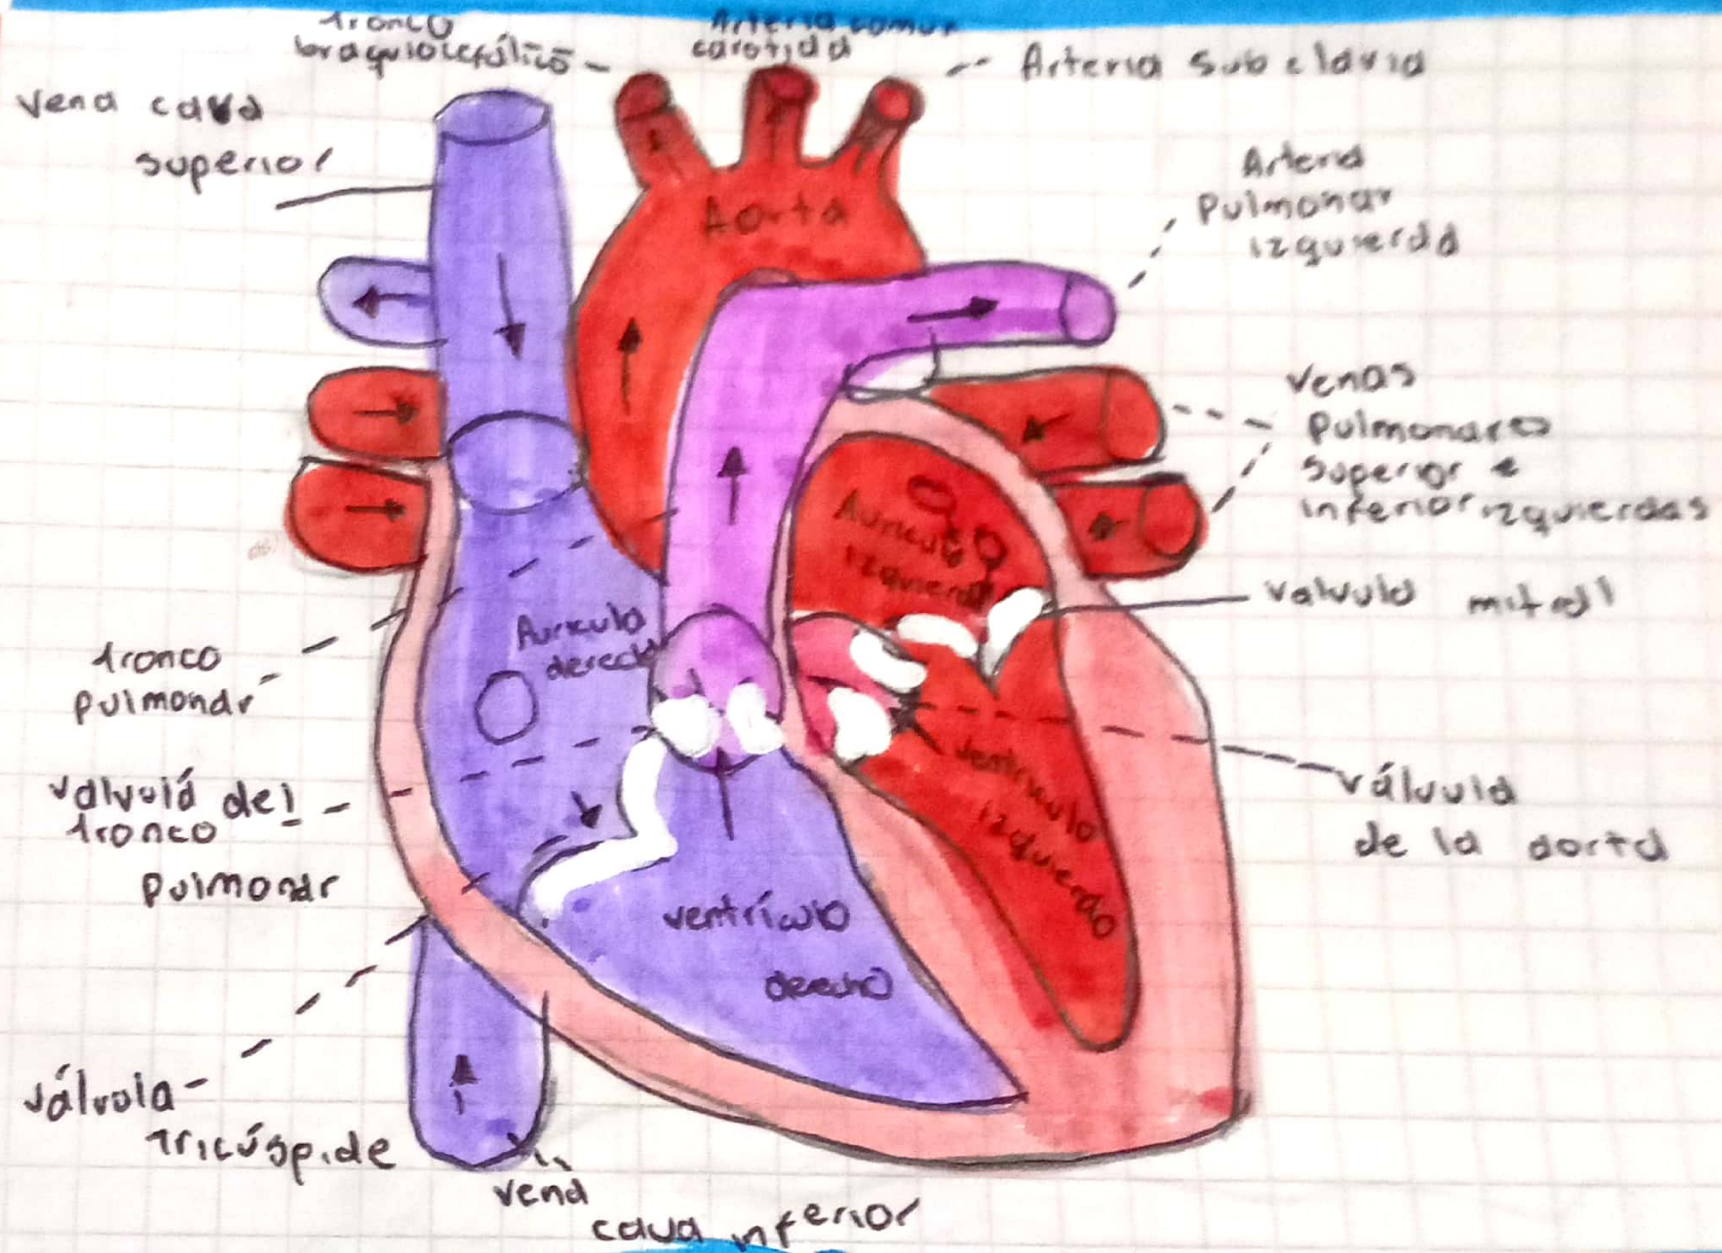 Tronco
braquiocefálico
Arteria comun
carotida
Arteria subclavia
vena cava
superior
Aorta
Arteria
Pulmonar
izquierda
venas
Pulmonares
superior e
inferior izquierdas
Auricula
izquierda
valvula mitral
Auricula
derecha
tronco
pulmonar
valvula del
tronco
pulmonar
ventriculo
izquierdo
válvula
de la aorta
ventrículo
derecho
válvula
tricúspide
vena
cava inferior